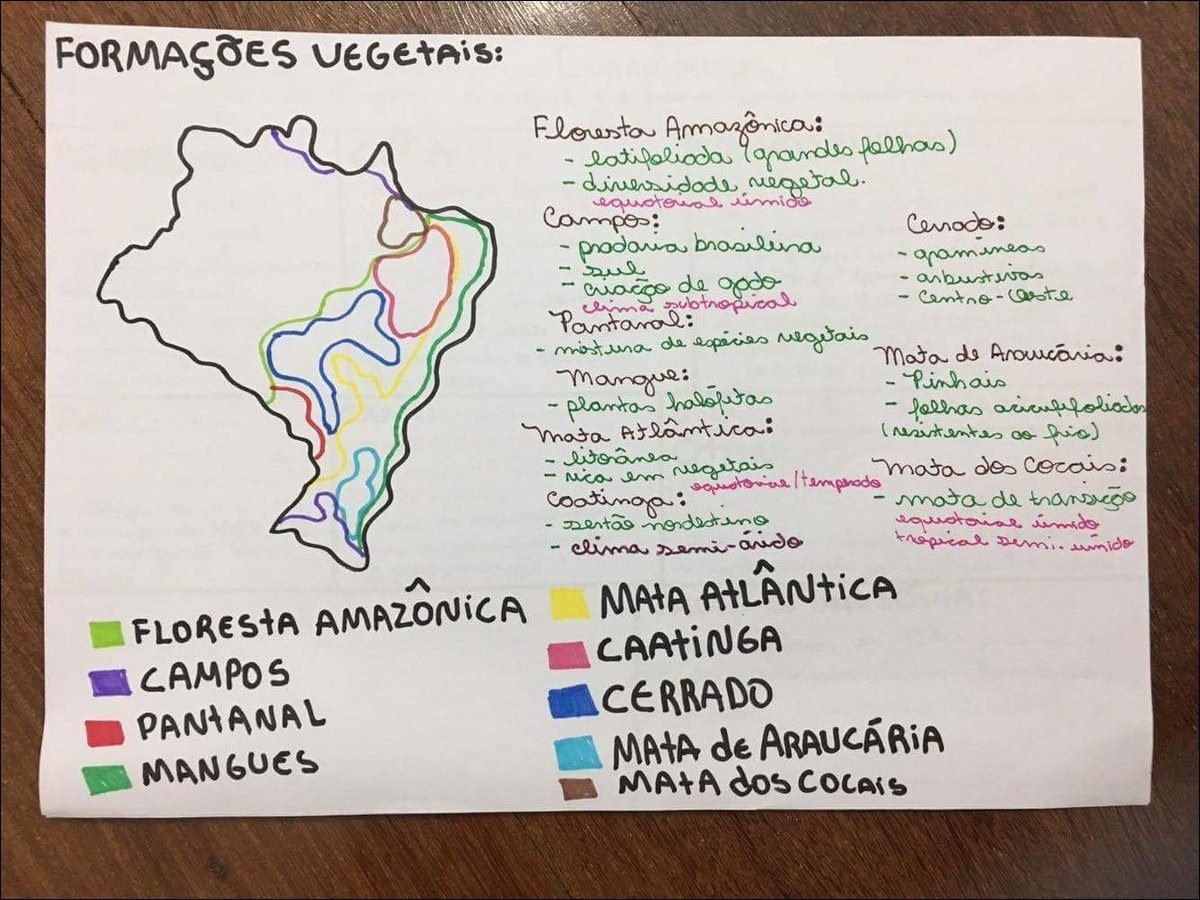 FORMAÇÕES VEGETAIS:
Floresta Amazônica:
- latifoliada (grandes folhas)
- diversidade vegetal.
equatorial úmido
Campos:
- pradaria brasileira
- sul
- criação de gado
clima subtropical
Pantanal:
- mistura de espécies vegetais
Mangue:
- plantas halófitas
Mata Atlântica:
- litorânea
- rica em vegetais
equatorial/temperado
Caatinga:
- sertão nordestino
- clima semi-árido
Cerrado:
- gramíneas
- arbustivas
- Centro-Oeste
Mata de Araucária:
- Pinhais
- folhas
(resistentes ao frio)
Mata dos Cocais:
- mata de transição
equatorial úmido
tropical semi-úmido
FLORESTA AMAZÔNICA
CAMPOS
PANTANAL
MANGUES
MATA ATLÂNTICA
CAATINGA
CERRADO
MATA de ARAUCÁRIA
MATA dos COCAIS